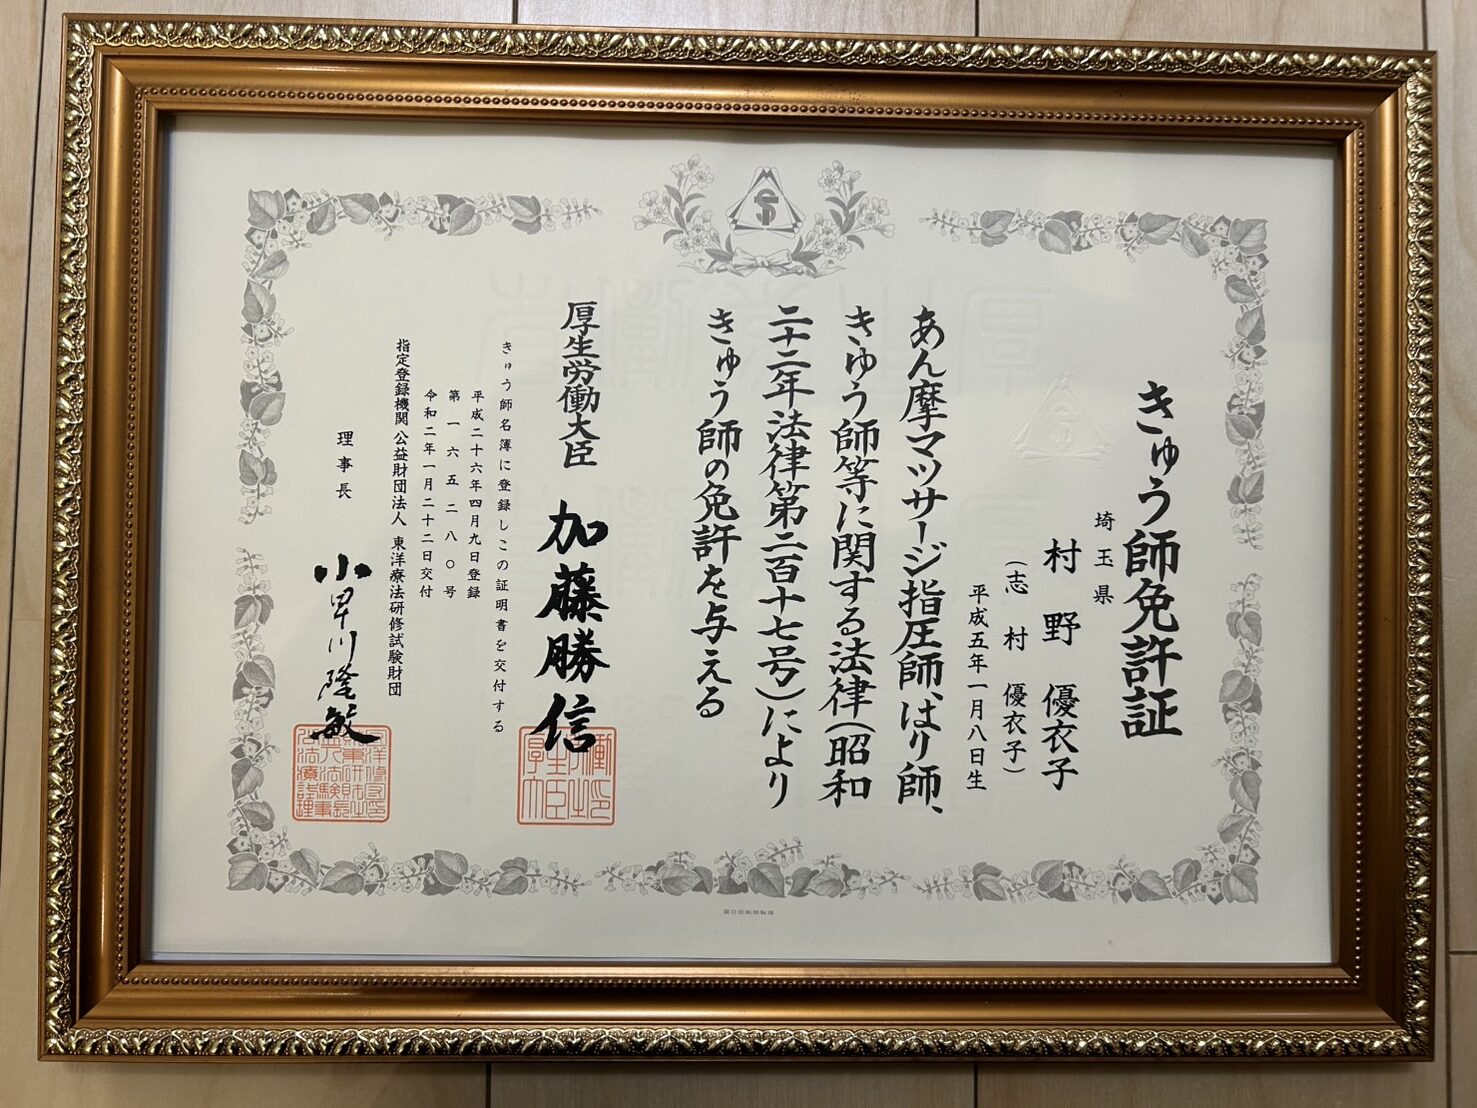 きゅう師免許証
埼玉県
村野 優衣子
（志村 優衣子）
平成五年一月八日生
あん摩マツサージ指圧師、はり師、
きゆう師等に関する法律（昭和
二十二年法律第二百十七号）により
きゅう師の免許を与える
厚生労働大臣 加藤勝信
きゅう師名簿に登録しこの証明書を交付する
平成二十六年四月九日登録
第一六五二八〇号
令和二年一月二十二日交付
指定登録機関 公益財団法人 東洋療法研修試験財団
理事長 小早川隆敏
国立印刷局製造